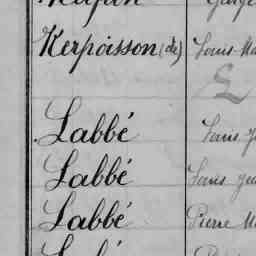 Kerpoisson (de) Louis Ma
Labbé Louis J
Labbé Louis Jea
Labbé Pierre Ma